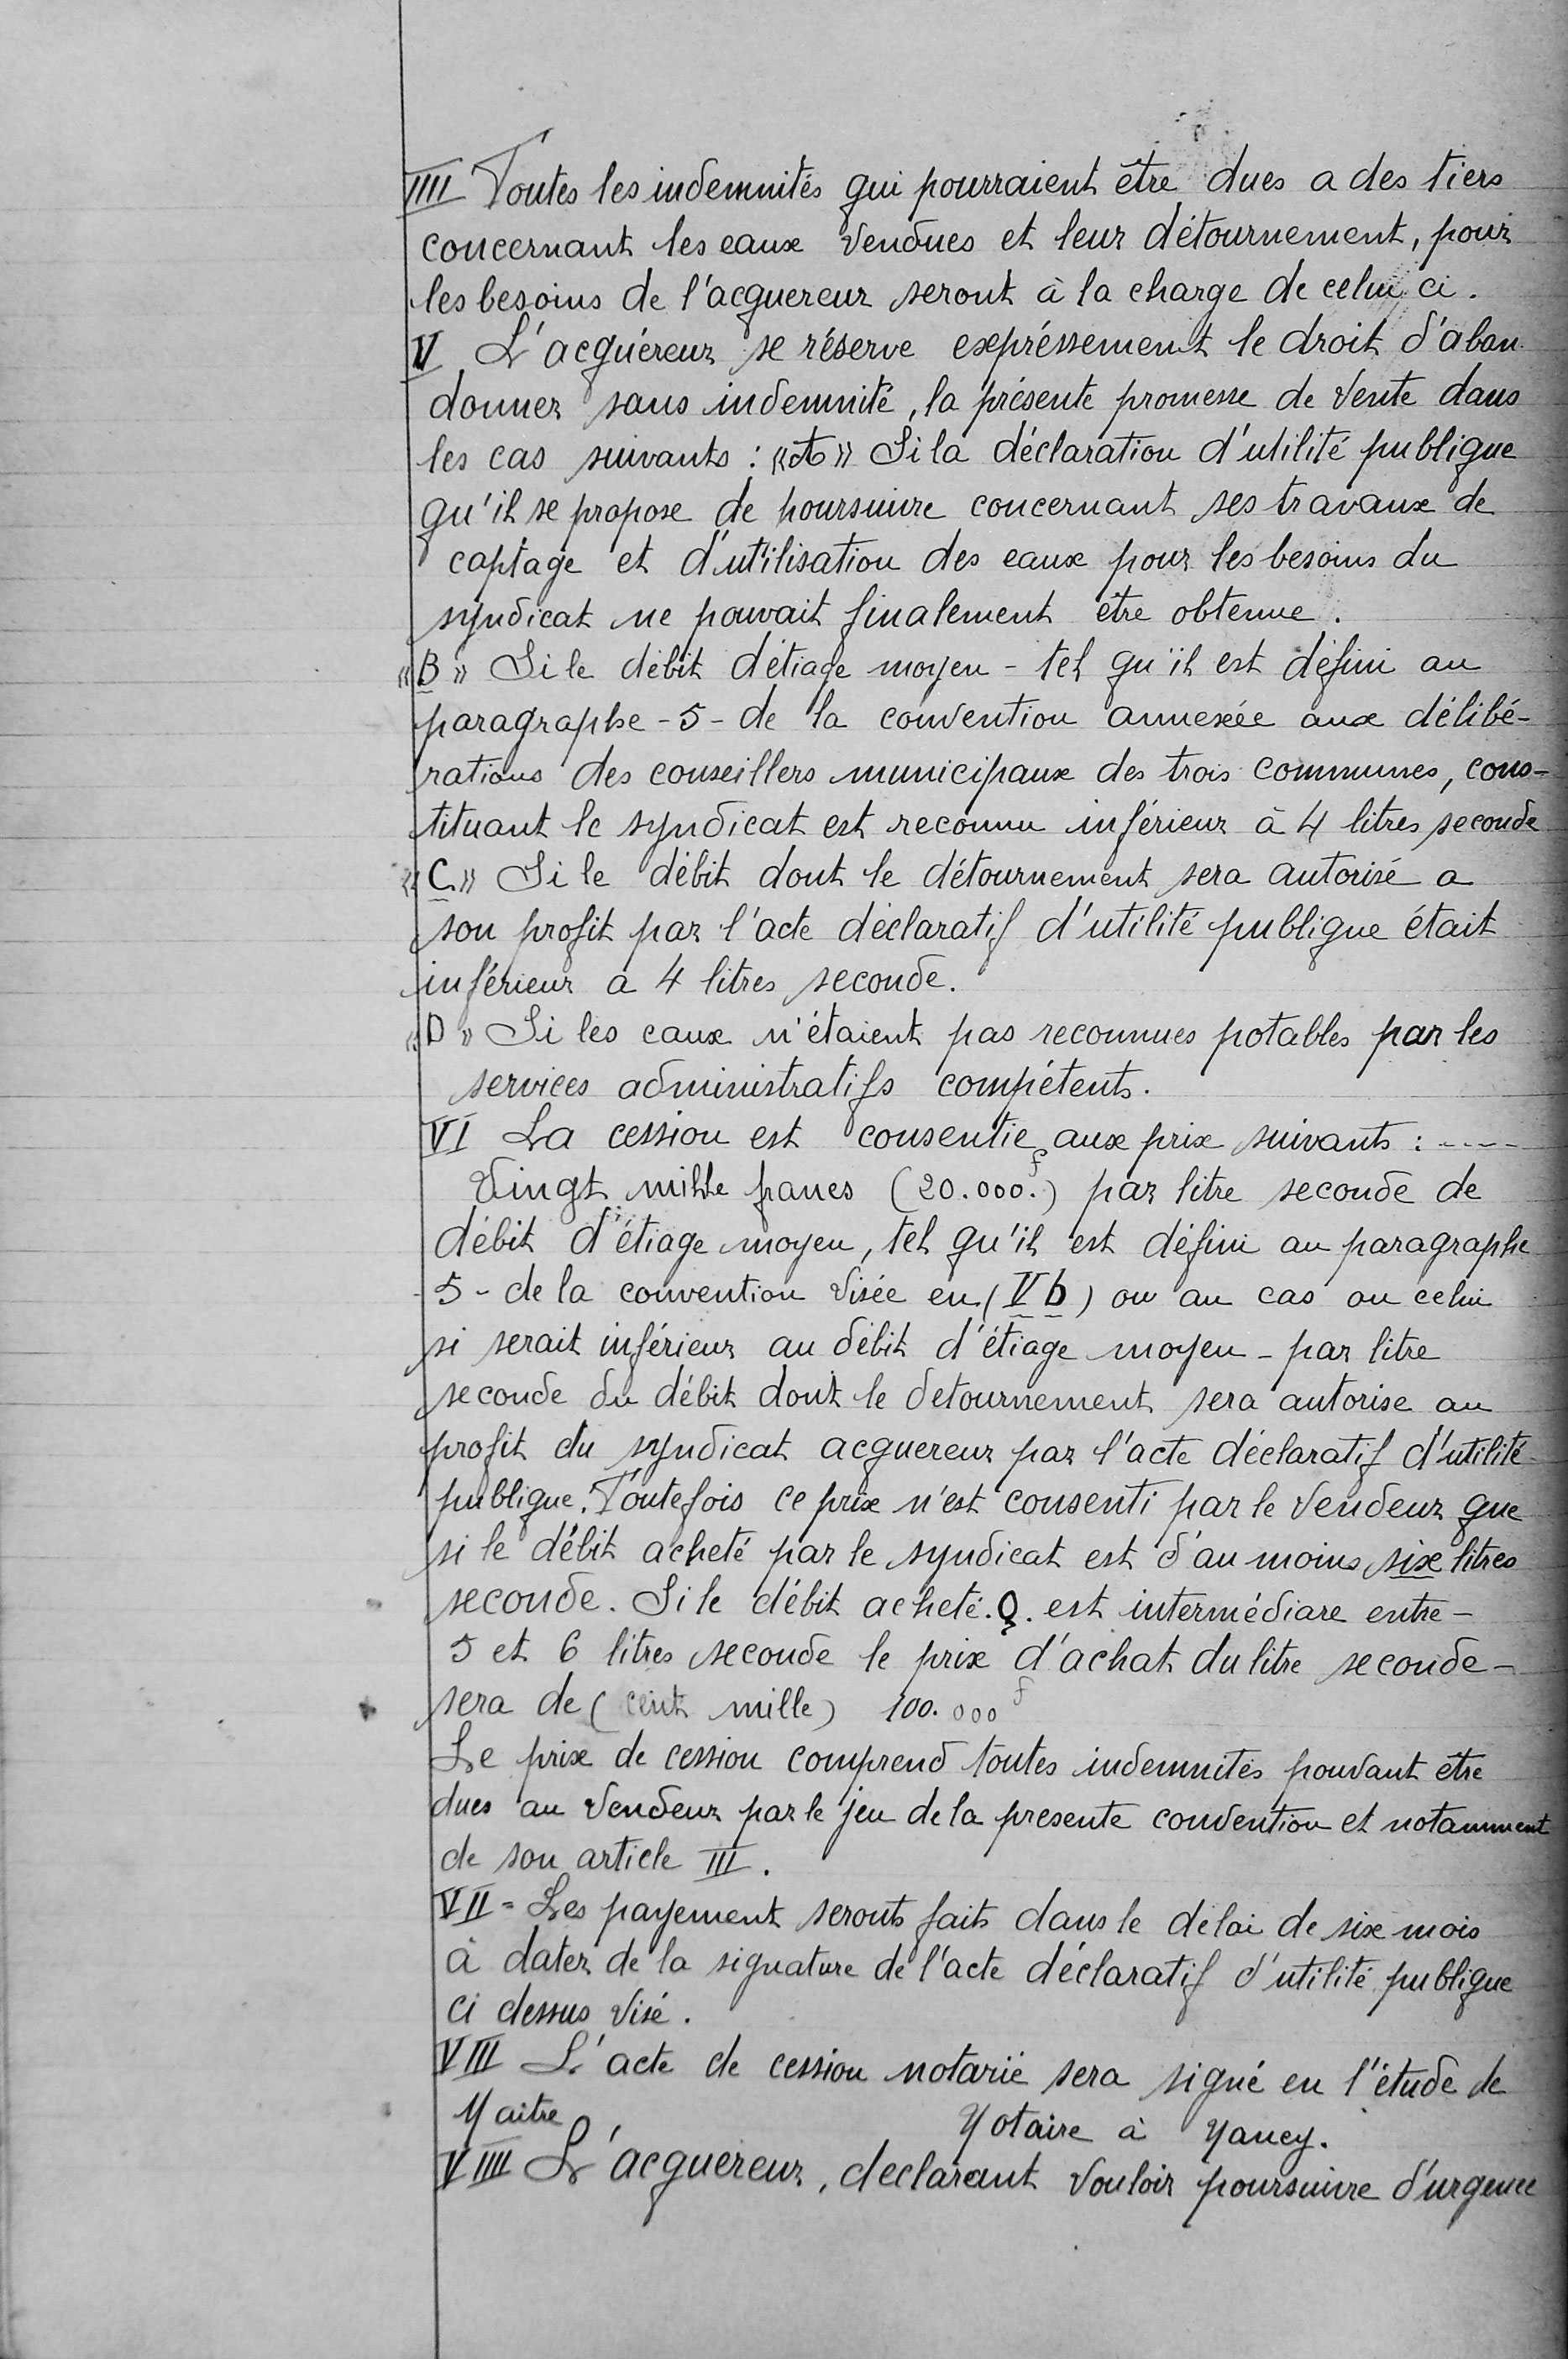 IIII Toutes les indemnités qui pourraient être dues a des tiers
concernant les eaux vendues et leur détournement, pour
les besoins de l'acquereur seront à la charge de celui ci.
V L'acquéreur se réserve expréssement le droit d'aban
donner sans indemnité, la présente promesse de vente dans
les cas suivants : «A» Si la déclaration d'utilité publique
qu'il se propose de poursuivre concernant ses travaux de
captage et d'utilisation des eaux pour les besoins du
syndicat ne pouvait finalement être obtenue.
«B» Si le débit d'étiage moyen - tel qu'il est défini au
paragraphe - 5 - de la convention annexée aux délibé-
rations des conseillers municipaux des trois communes, cons-
tituant le syndicat est reconnu inférieur à 4 litres seconde
«C» Si le débit dont le détournement sera autorisé a
son profit par l'acte déclaratif d'utilité publique était
inférieur a 4 litres seconde.
«D» Si les eaux n'étaient pas reconnues potables par les
services administratifs compétents.
VI La cession est consentie aux prix suivants : ----
Vingt mille francs (20.000.f) par litre seconde de
débit d'étiage moyen, tel qu'il est défini au paragraphe
- 5 - de la convention visée en (V b) ou au cas ou celui
si serait inférieur au débit d'étiage moyen - par litre
seconde du débit dont le detournement sera autorise au
profit du syndicat acquereur par l'acte déclaratif d'utilité
publique. Toutefois ce prix n'est consenti par le vendeur que
si le débit acheté par le syndicat est d'au moins six litres
seconde. Si le débit acheté. Q. est intermédiare entre -
5 et 6 litres seconde le prix d'achat du litre seconde -
sera de (cent mille) 100.000 f
Le prix de cession comprend toutes indemnités pouvant être
dues au vendeur par le jeu de la presente convention et notamment
de son article III.
VII - Les payement seronts faits dans le délai de six mois
à dater de la signature de l'acte déclaratif d'utilité publique
ci dessus visé.
VIII L'acte de cession notarié sera signé en l'étude de
Maitre Notaire à Nancy.
VIIII L'acquereur, declarant vouloir poursuivre d'urgence